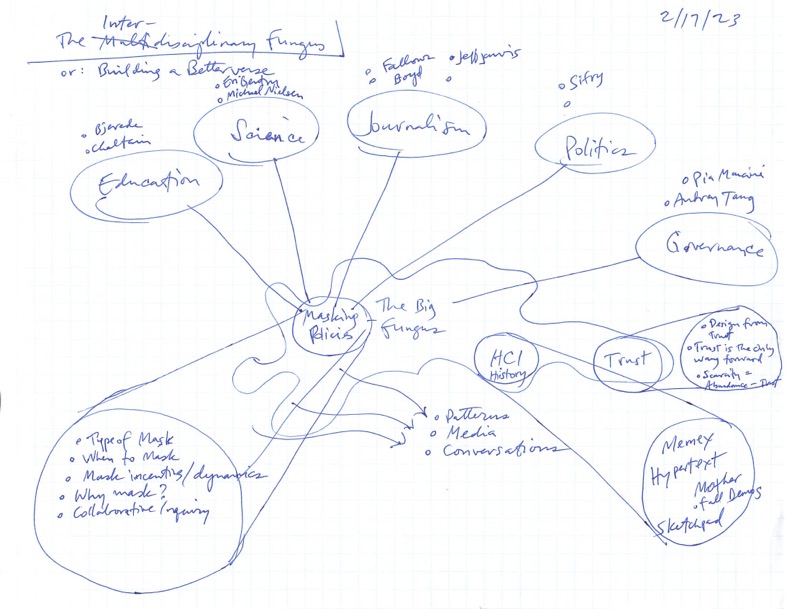 Inter-
The Multidisciplinary Fungus
or: Building a Betterverse
2/17/23
Science
• Michael Nielsen
Education
Journalism
• Fallows
Boyd
• Jeff Jarvis
Politics
• Sifry
Governance
• Pia Mancini
• Audrey Tang
Masking Policies
The Big Fungus
HCI History
Trust
• Design from Trust
• Trust is the only way forward
• Scarcity = Abundance - Trust
Memex
Hypertext
Mother of all Demos
Sketchpad
• Patterns
• Media
• Conversations
• Type of Mask
• When to Mask
• Mask incentives/dynamics
• Why mask?
• Collaborative inquiry